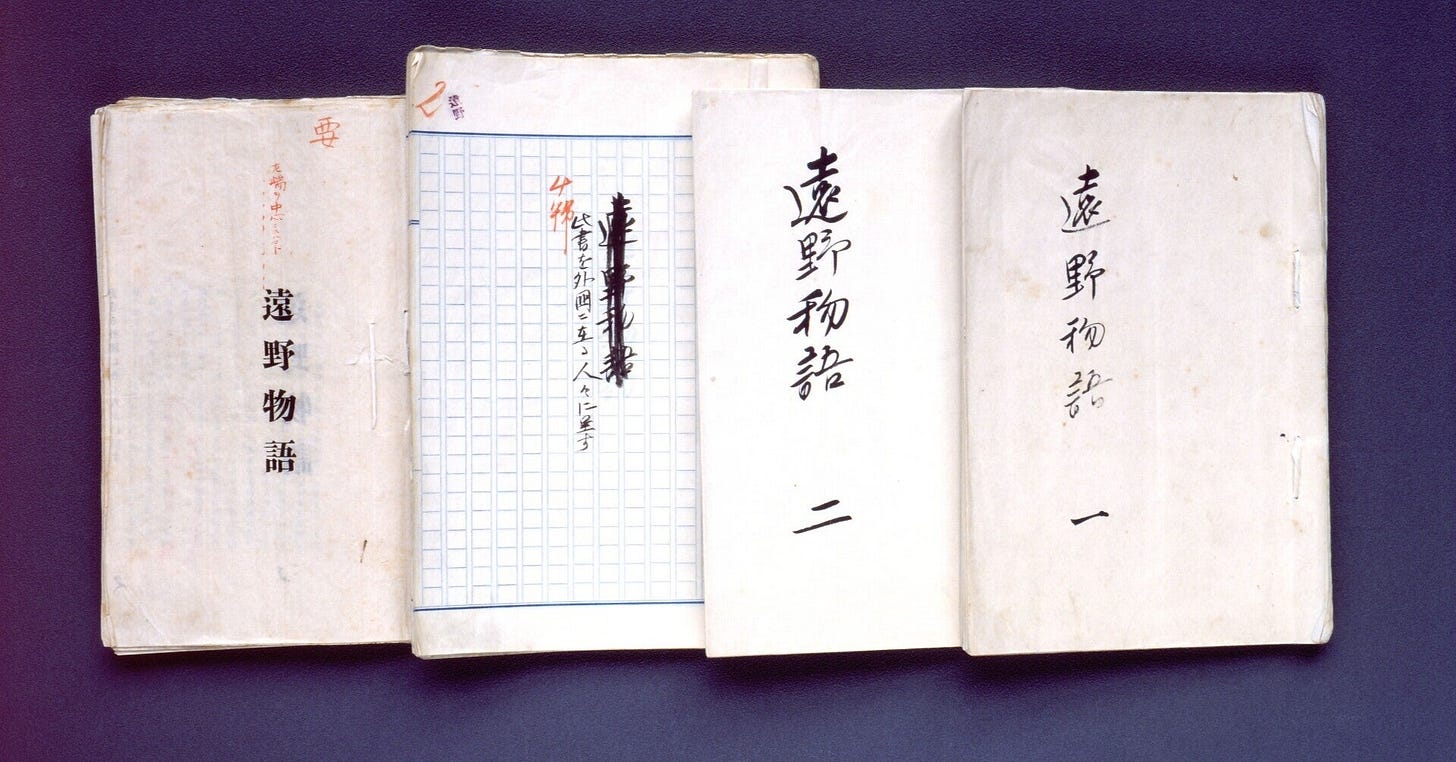 遠野物語
一
遠野物語
二
遠野物語
此書を外國ニ在る人々に呈す
遠野
要
遠野物語